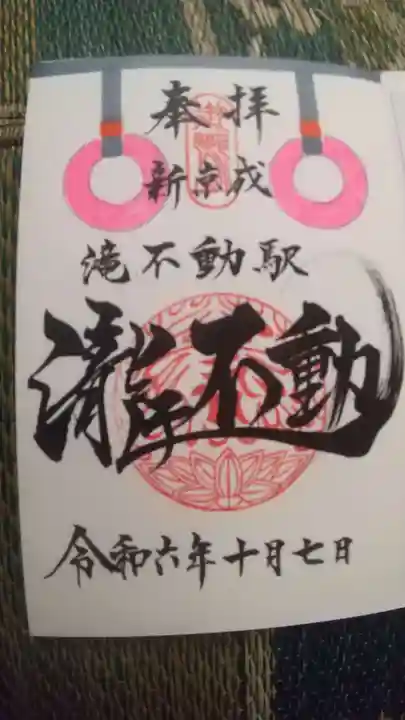 奉拝
新京成
滝不動駅
瀧不動
令和六年十月七日